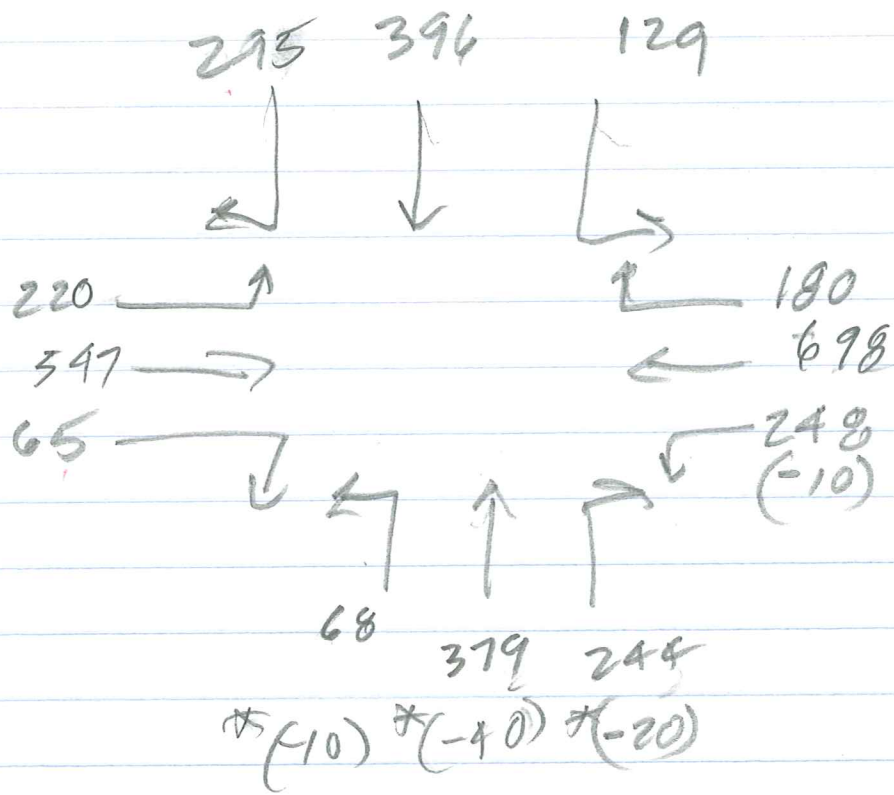 295 396 129
220 180
347 698
65 248
(-10)
68
379 244
*(-10) *(-40) *(-20)